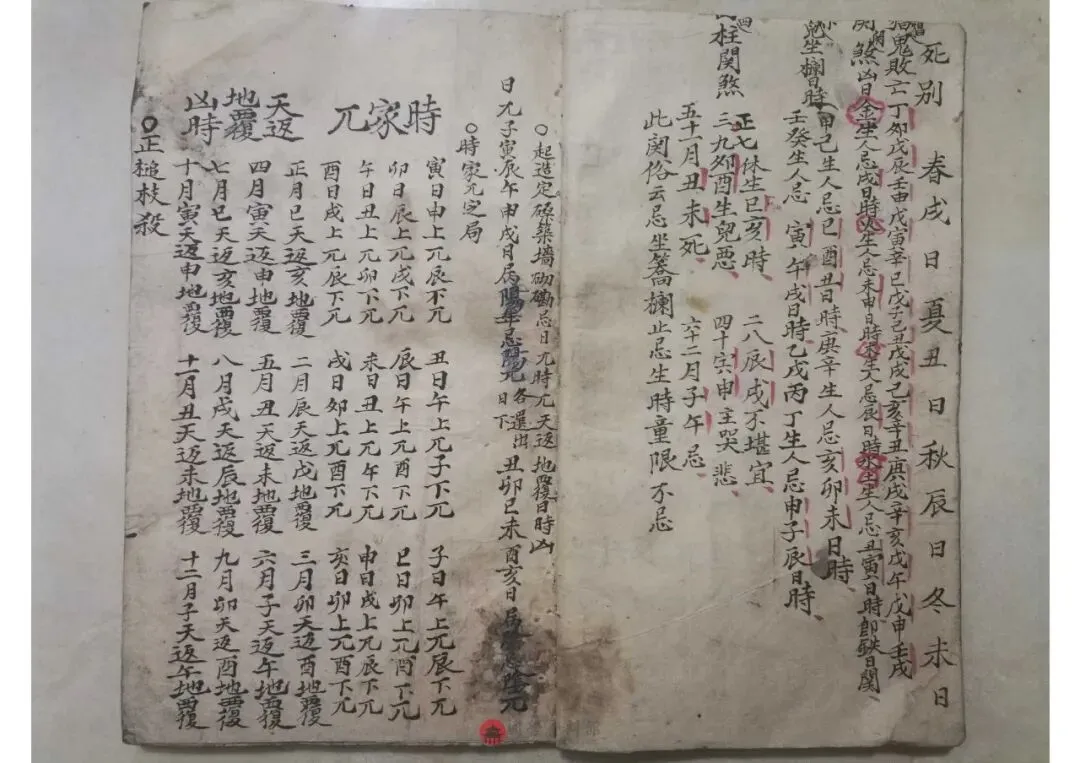 死别 春戌日夏丑日秋辰日冬未日
鬼敗亡丁卯戊辰壬申戊寅辛巳戊子己丑戊戌己亥辛丑庚戌辛亥戊午戊申壬戌
関煞凶日金生人忌戌日時火生人忌未申日時木生人忌辰日時水土生人忌丑寅日時即鉄日関
兒坐欄日時甲己生人忌巳酉丑日時庚辛生人忌亥卯未日時
壬癸生人忌寅午戌日時乙戊丙丁生人忌申子辰日時
四柱関煞
正七休生巳亥時 二八辰戌不堪宜
三九卯酉生兒悪 四十寅申主哭悲
五十一月丑未死 六十二月子午忌
此関俗云忌坐蕎欄止忌生時童限不忌
○起造定磉築墻砌磡忌日兀時兀天返地覆日時凶
日兀子寅辰午申戌日為陽年忌陽兀各日下選出丑卯巳未酉亥日為陰忌陰兀
○時家兀定局
時家兀
寅日申上兀辰下兀 丑日午上兀子下兀 子日午上兀辰下兀
卯日辰上兀戌下兀 辰日午上兀酉下兀 巳日卯上兀酉下兀
午日丑上兀卯下兀 未日丑上兀午下兀 申日戌上兀辰下兀
酉日戌上兀辰下兀 戌日卯上兀酉下兀 亥日卯上兀酉下兀
天返地覆凶時
正月巳天返亥地覆 二月辰天返戌地覆 三月卯天返酉地覆
四月寅天返申地覆 五月丑天返未地覆 六月子天返午地覆
七月巳天返亥地覆 八月戌天返辰地覆 九月卯天返酉地覆
十月寅天返申地覆 十一月丑天返未地覆 十二月子天返午地覆
○正槌杖殺